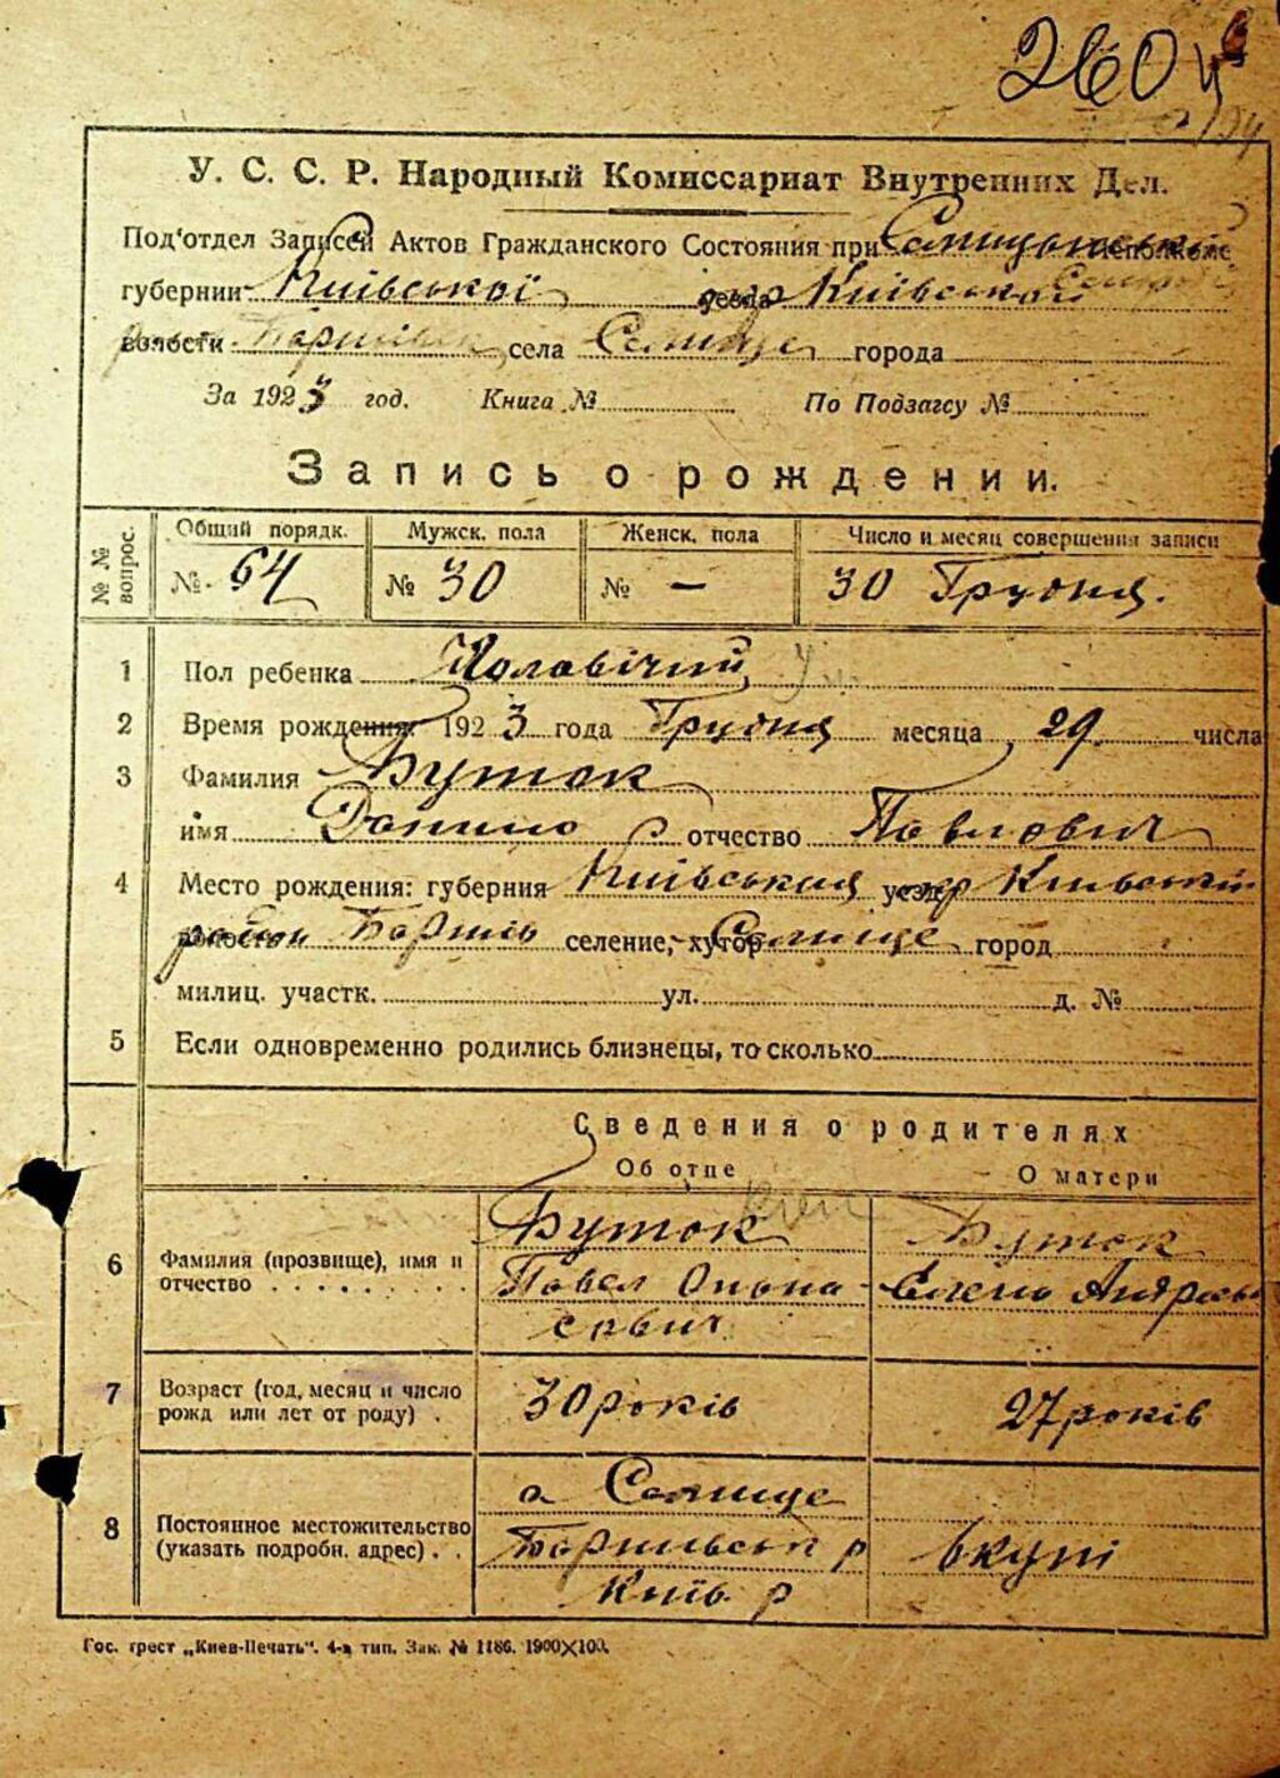 260
У. С. С. Р. Народный Комиссариат Внутренних Дел.
Под'отдел Записей Актов Гражданского Состояния при
губернии Київської уезда Київської
волости села Селище города
За 1923 год. Книга № По Подзагсу №
Запись о рождении.
№ № вопрос. Общий порядк. Мужск. пола Женск. пола Число и месяц совершения записи
№ 64 № 30 № — 30 Грудня.
1 Пол ребенка Чоловічий
2 Время рождения: 1923 года Грудня месяца 29 числа
3 Фамилия Буток
имя Данило отчество Павлович
4 Место рождения: губерния Київська уезд Київський
район селение, хутор Селище город
милиц. участк. ул. д. №
5 Если одновременно родились близнецы, то сколько
Сведения о родителях
Об отце О матери
6 Фамилия (прозвище), имя и отчество Буток Буток
Павел Опана-
сович
7 Возраст (год, месяц и число рожд или лет от роду) 30 років 27 років
8 Постоянное местожительство (указать подробн. адрес) Селище
вкупі
Київ. р
Гос. трест „Киев-Печать“. 4-я тип. Зак. № 1186. 1900×100.